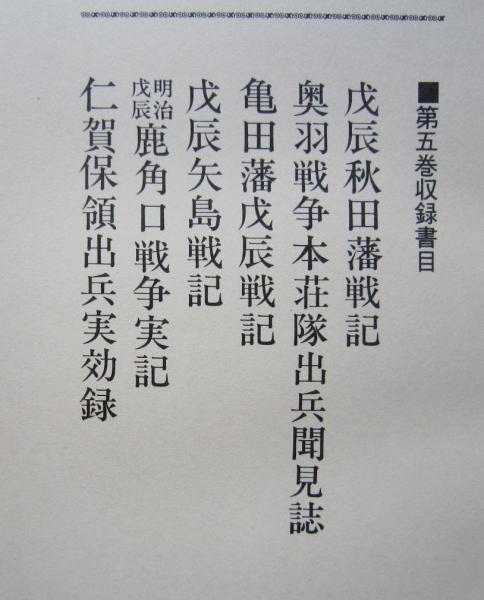 ■第五巻収録書目
戊辰秋田藩戦記
奥羽戦争本荘隊出兵聞見誌
亀田藩戊辰戦記
戊辰矢島戦記
明治戊辰鹿角口戦争実記
仁賀保領出兵実効録